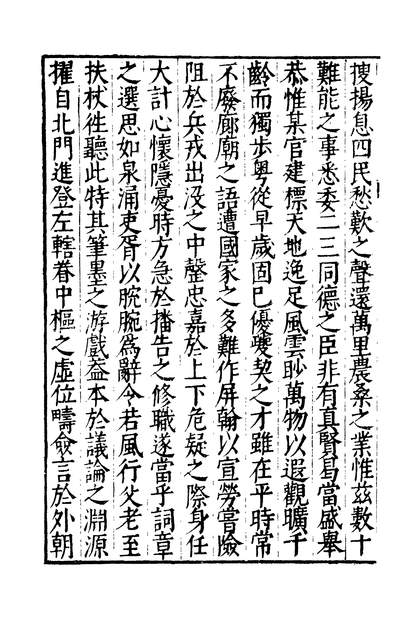 搜揚息四民愁歎之聲還萬里農桑之業惟茲數十
難能之事悉委二三同德之臣非有真賢曷當盛舉
恭惟某官建標天地逸足風雲眇萬物以遐觀曠千
齡而獨步粤從早歲固已優夔契之才雖在平時常
不廢廊廟之語遭國家之多難作屏翰以宣勞嘗險
阻於兵戎出没之中罄忠嘉於上下危疑之際身任
大計心懷隱憂時方急於播告之修職遂當乎詞章
之選思如泉涌吏胥以脱腕爲辭令若風行父老至
扶杖徃聽此特其筆墨之游戲葢本於議論之淵源
擢自北門進登左轄眷中樞之虛位疇僉言於外朝